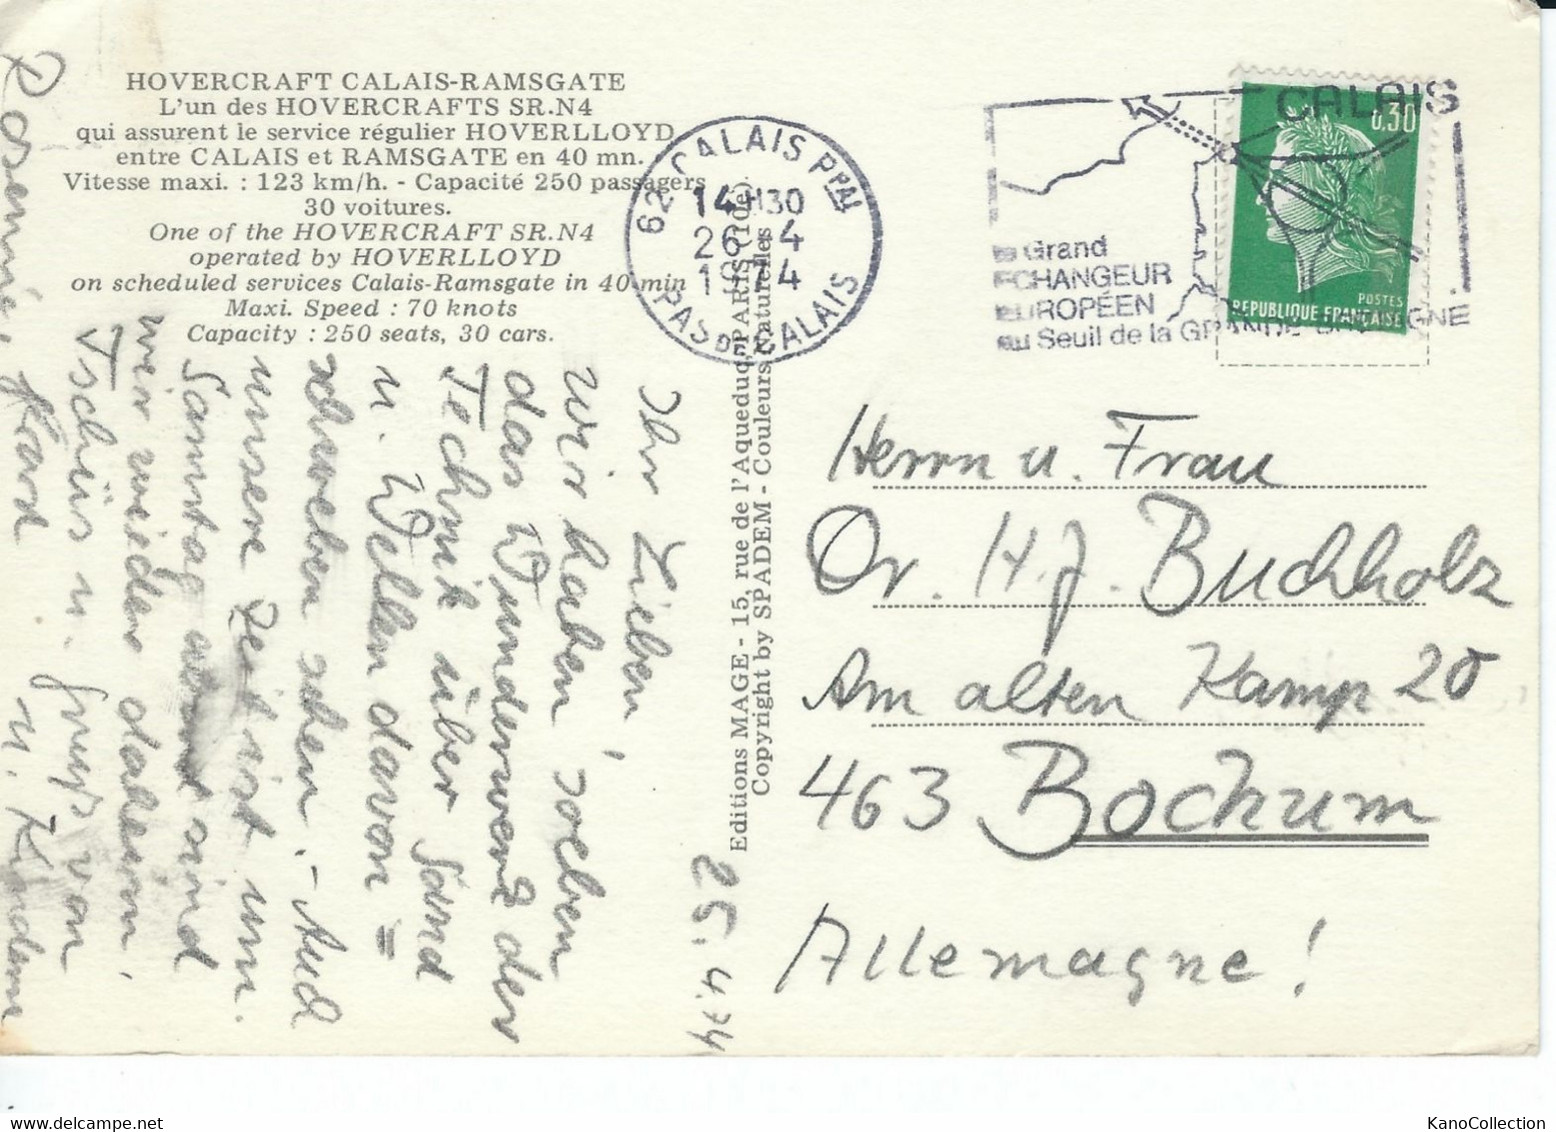 HOVERCRAFT CALAIS-RAMSGATE
L'un des HOVERCRAFTS SR.N4
qui assurent le service régulier HOVERLLOYD
entre CALAIS et RAMSGATE en 40 mn.
Vitesse maxi. : 123 km/h. - Capacité 250 passagers
30 voitures.
One of the HOVERCRAFT SR.N4
operated by HOVERLLOYD
on scheduled services Calais-Ramsgate in 40 min
Maxi. Speed : 70 knots
Capacity : 250 seats, 30 cars.
62 CALAIS PPAL
14H30
26-4
1974
PAS DE CALAIS
CALAIS
Grand
ECHANGEUR
EUROPÉEN
au Seuil de la GRANDE BRETAGNE
0,30
POSTES
REPUBLIQUE FRANÇAISE
Editions MAGE - 15, rue de l'Aqueduc, PARIS (10e)
Copyright by SPADEM - Couleurs Naturelles
25.4.74
Ihr Lieben,
wir haben soeben
das Wunderwerk der
Technik über Sand
u. Wellen davon=
schweben sehen.- Auch
unsere Zeit ist um.
Samstag sind
wir wieder daheim.
Tschüs u. Gruß von
Rosemie, Hard u. Kindern
Herrn u. Frau
Dr. H.J. Buchholz
Am alten Kamp 20
463 Bochum
Allemagne!
www.delcampe.net
KanoCollection